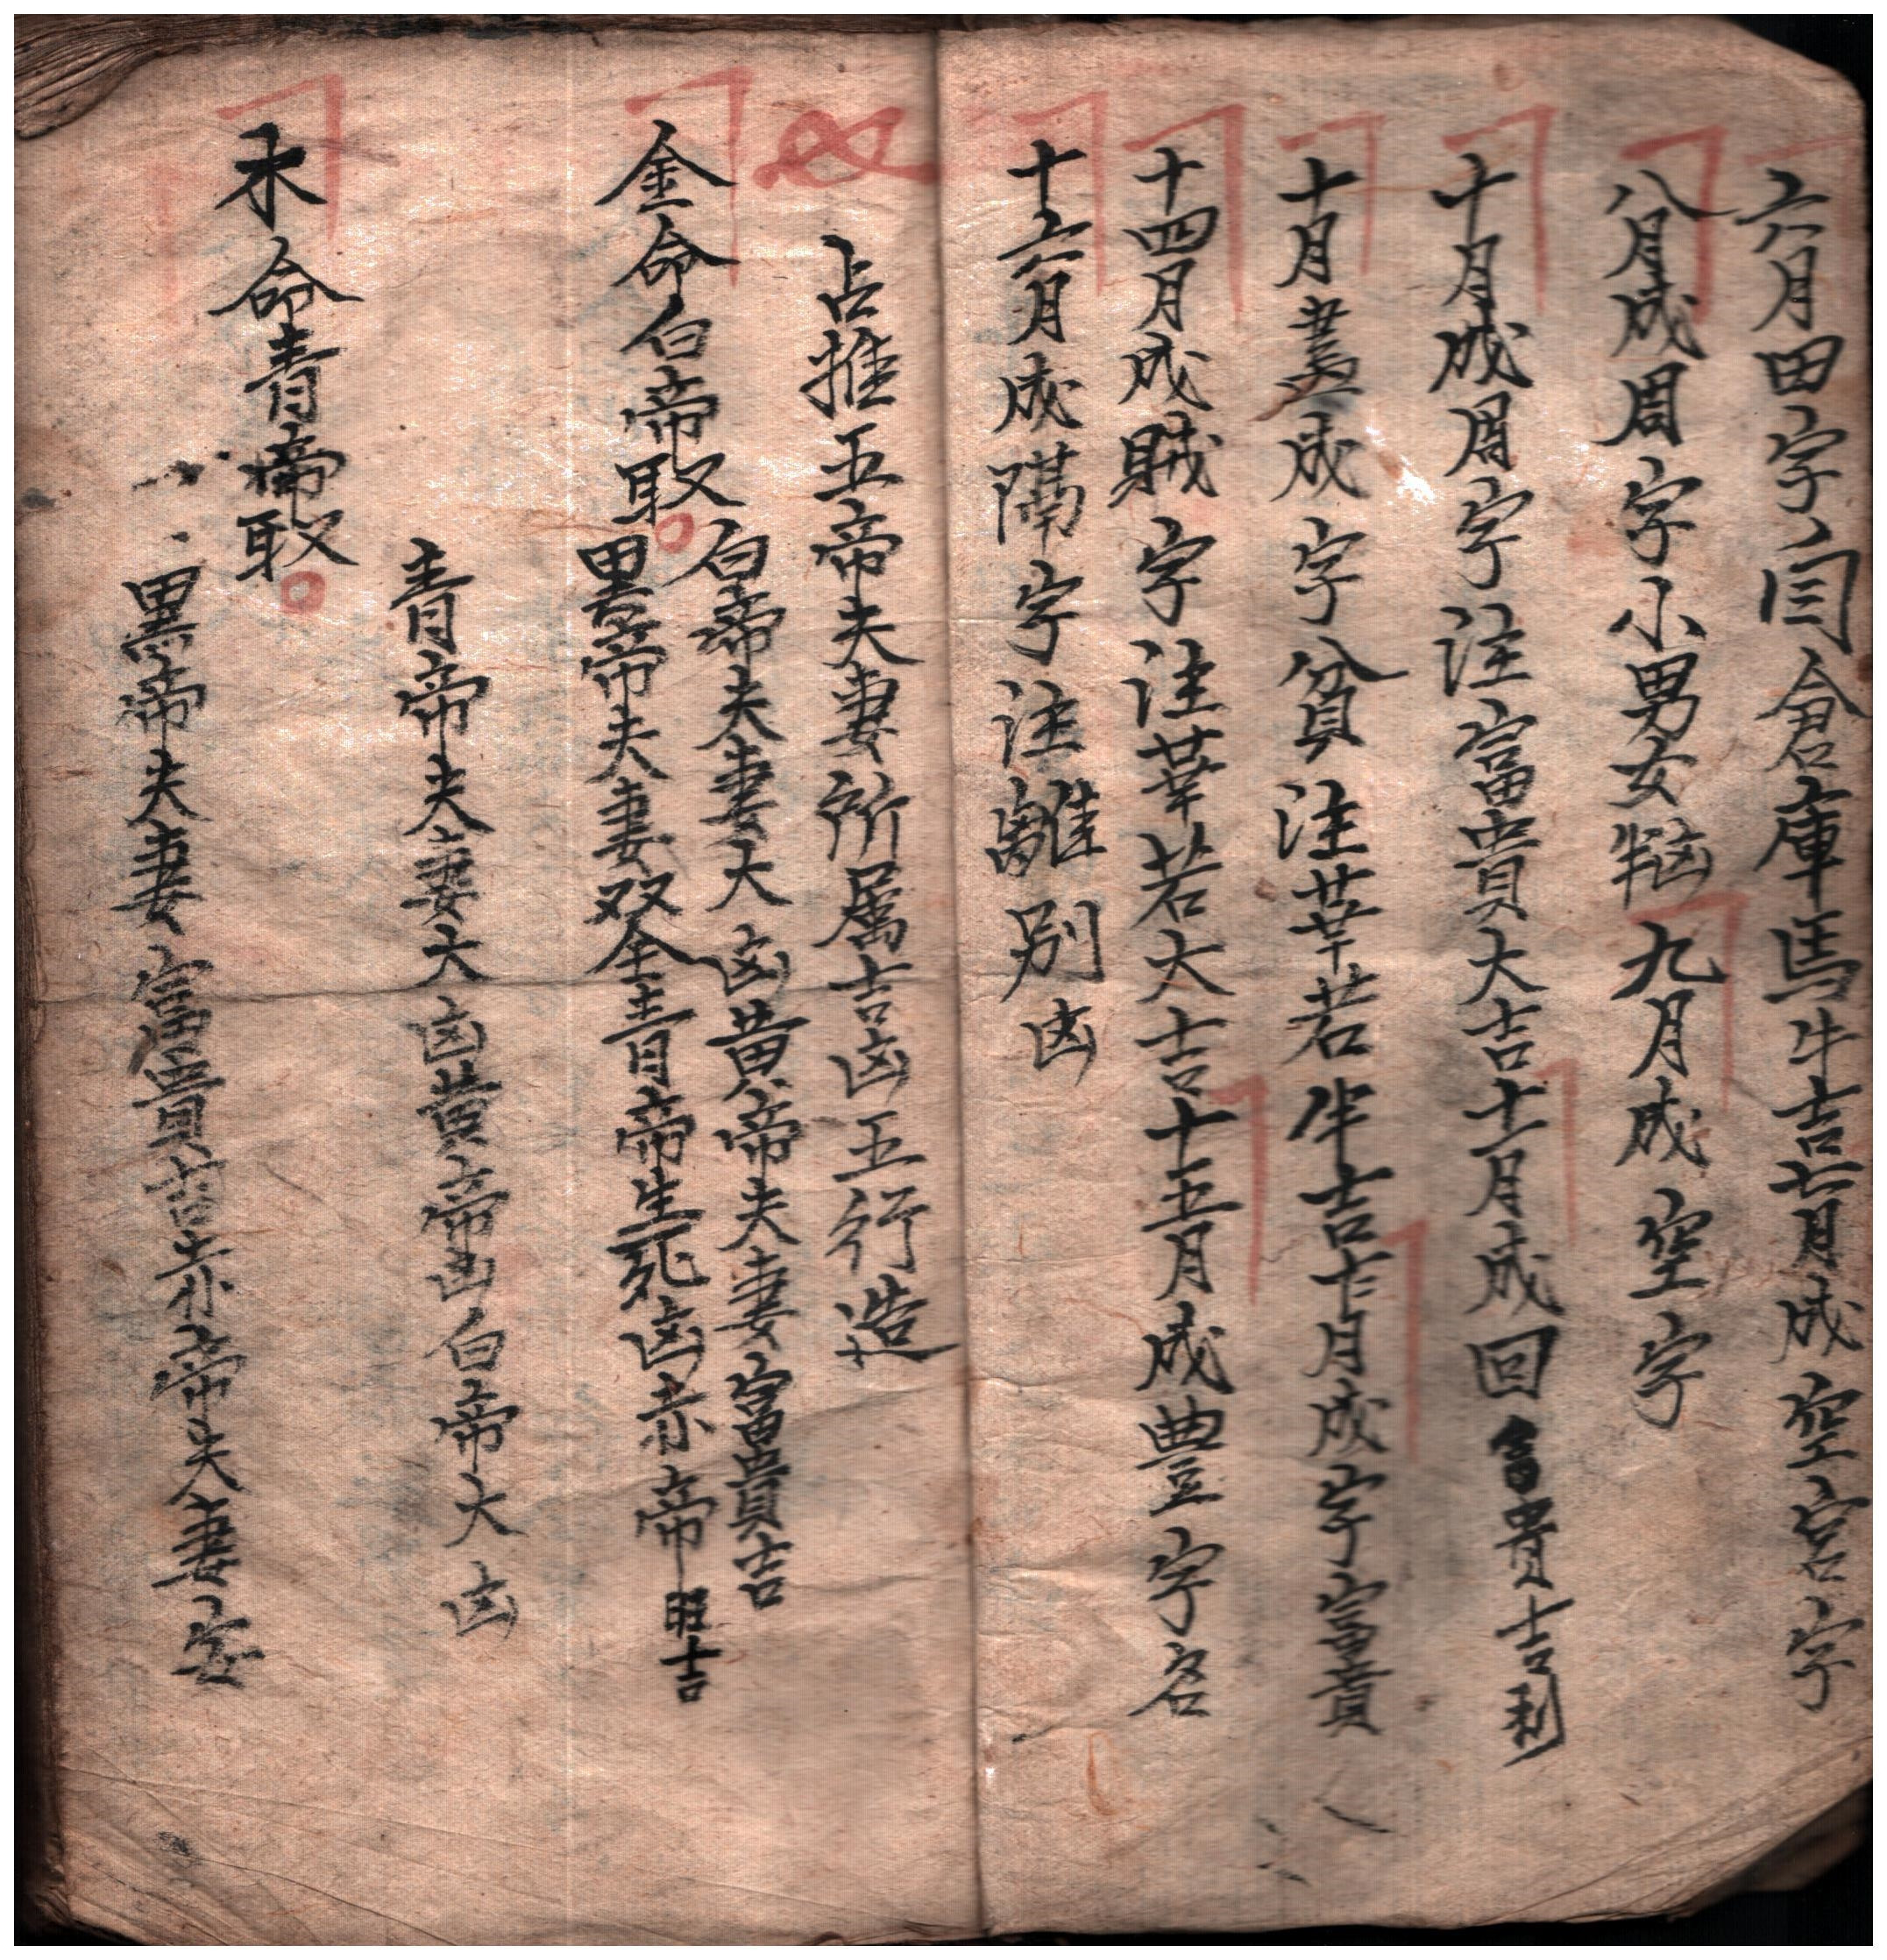 六月田字閆倉庫馬牛吉七月成空宮字
八月成周字小男女九月成空字
十月成周字注富貴大吉十一月成回富貴吉利
十月成字貧注辛若半吉十月成字富貴
十四月成賊字注辛若大吉十五月成豊字名
十六月成隔字注離別凶
占推五帝夫妻所属吉凶五行造
金命白帝取
白帝夫妻大凶黄帝夫妻富貴吉
黑帝夫妻双全青帝生死凶赤帝旺吉
青帝夫妻大凶黄帝凶白帝大凶
木命青帝取
黑帝夫妻富貴吉赤帝夫妻安